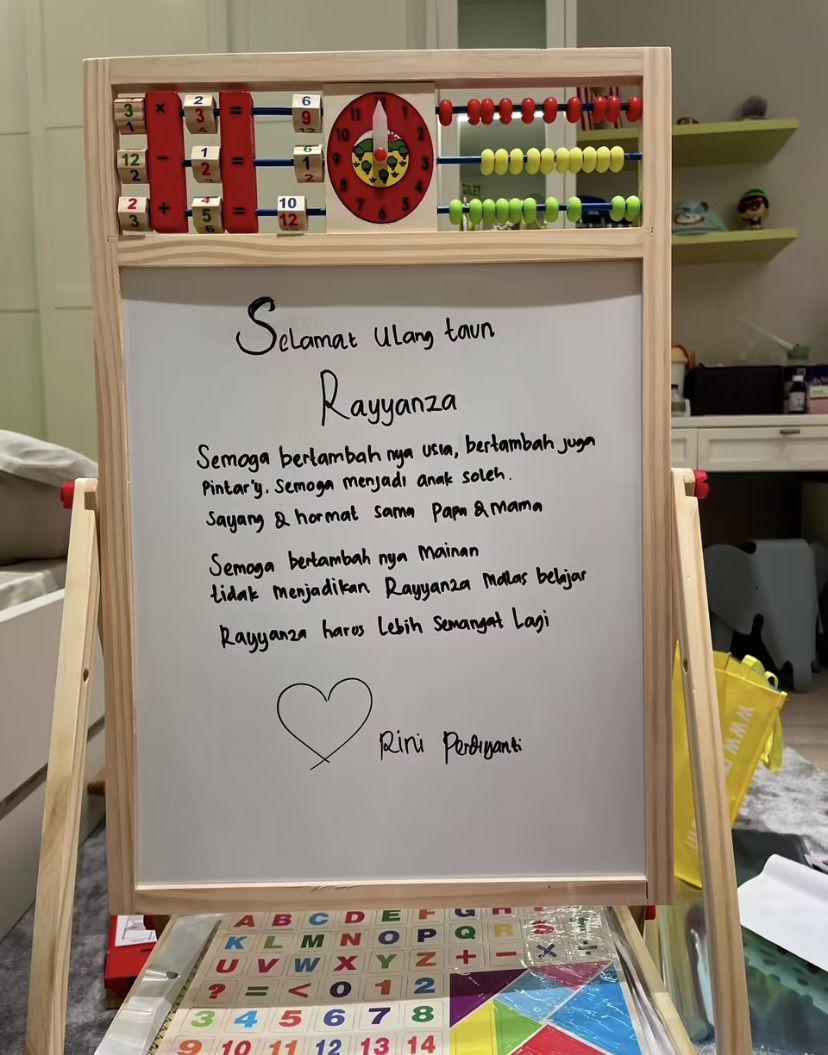 3 × 2 = 6
1 3 4 9
12 - 1 = 6
2 2 1
2
2 + 4 = 10
3 5 12
6
11 1
10 2
9 3
8 4
7 6 5
Selamat ulang taun
Rayyanza
Semoga bertambah nya usia, bertambah juga
Pintar'y. Semoga menjadi anak soleh.
Sayang & hormat sama Papa & Mama
Semoga bertambah nya Mainan
tidak Menjadikan Rayyanza Malas belajar
Rayyanza harus Lebih Semangat Lagi
Rini Perdiyanti
A B C D E F G H
K L M N O P Q R
U V W X Y Z + - × ÷
? = < 0 1 2
3 4 5 6 7 8
9 10 11 12 13 14
www.